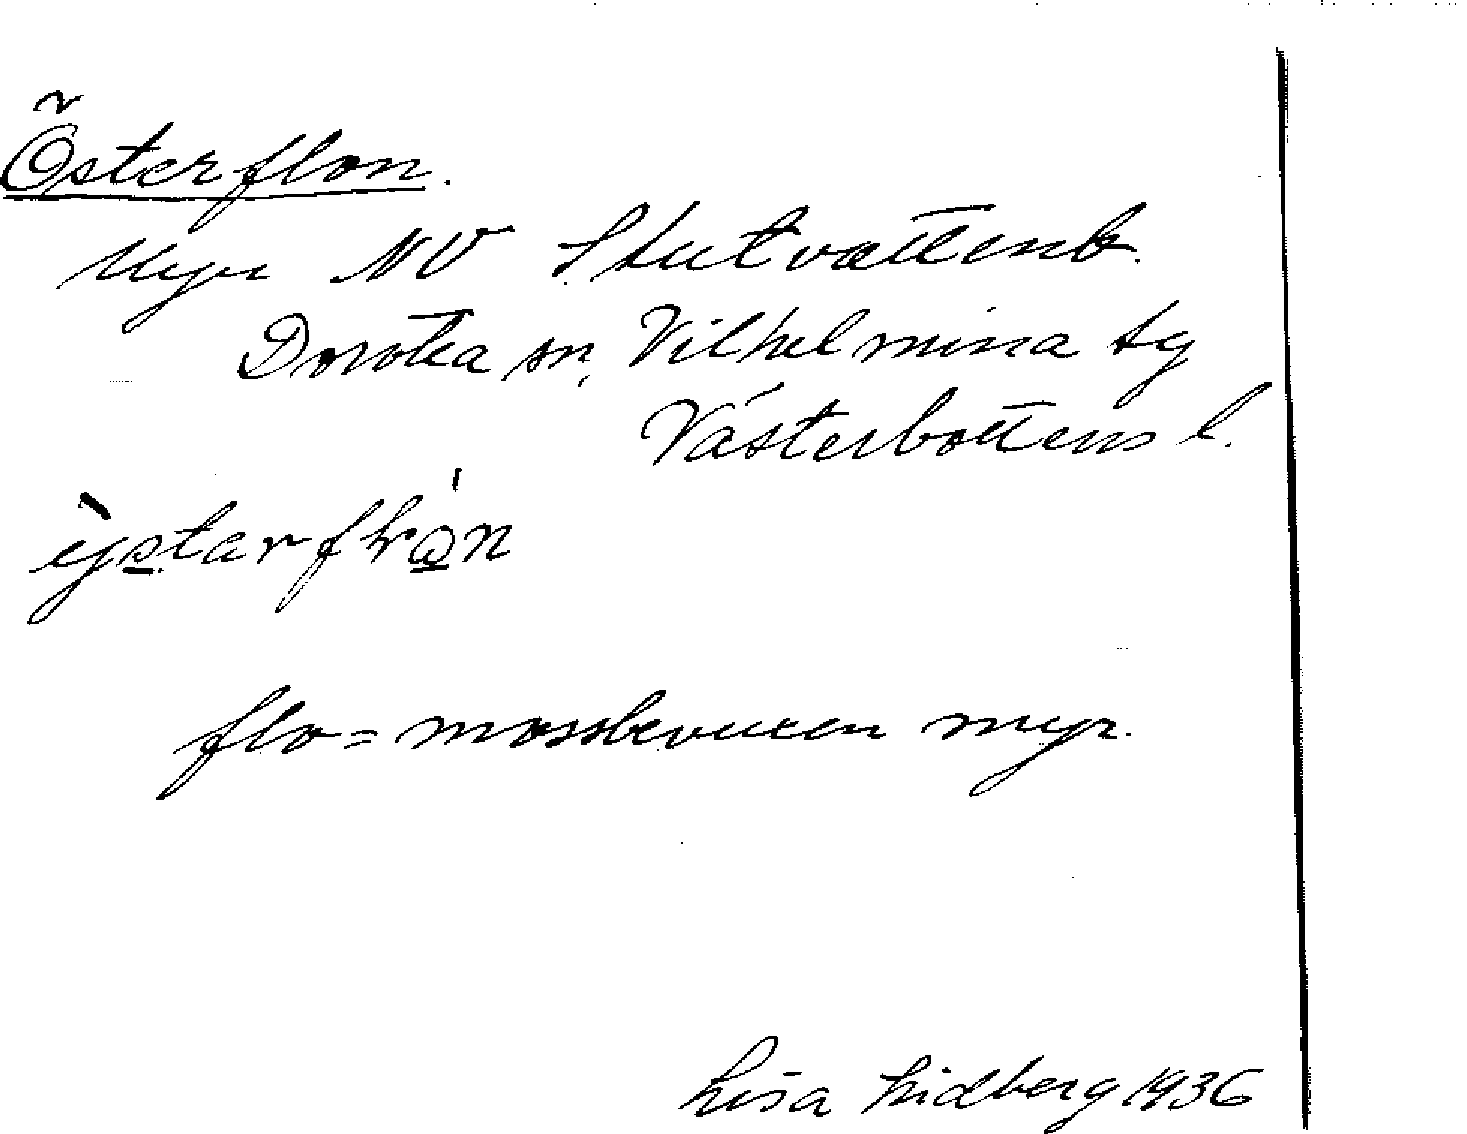 Österflon.
Myr NV Stutvattenb.
Dorotea sn, Vilhelmina tg
Västerbottens l.
flo = mossbevuxen myr.
Lisa Lidberg 1936